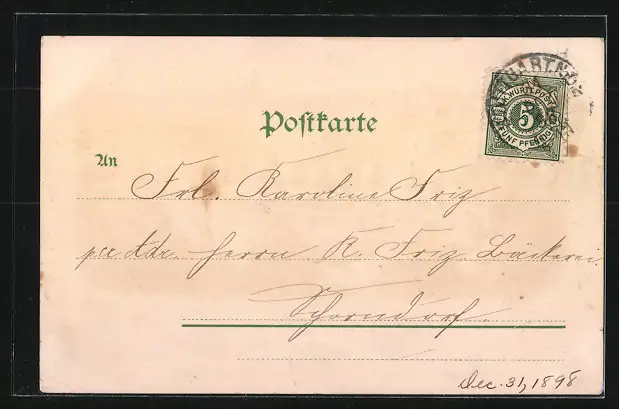 STUTTGART
K. WÜRTT. POST
5
FÜNF PFENNIG
Postkarte
An
Frl. Karoline Friz
per Adr. Herrn K. Friz Bäckerei
Schorndorf.
Dec. 31, 1898